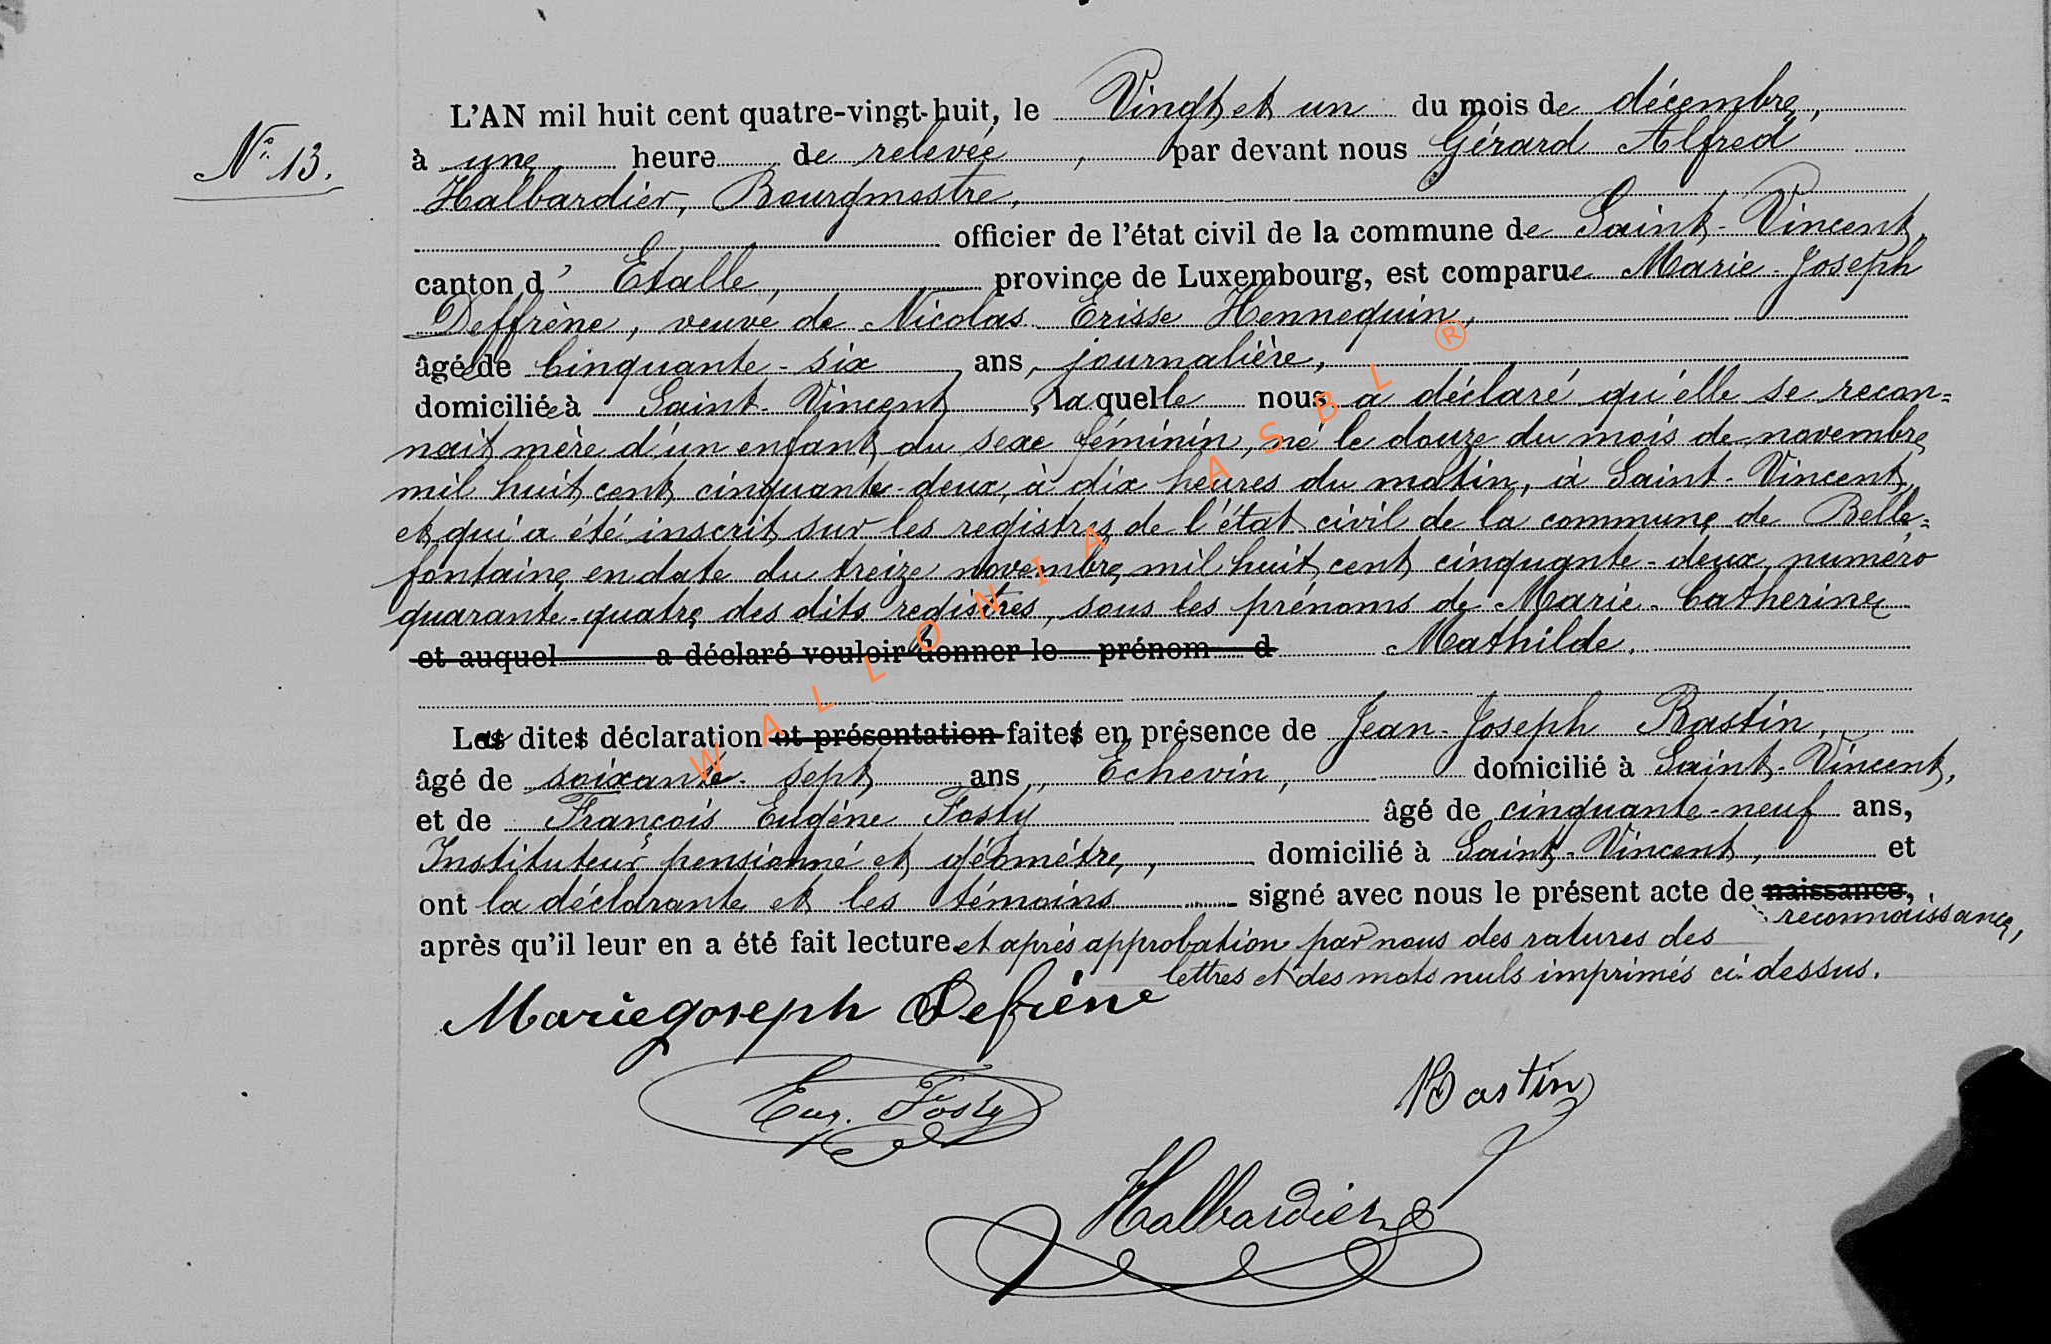 N° 13.
L'AN mil huit cent quatre-vingt-huit, le Vingt et un du mois de décembre,
à une heure de relevée, par devant nous Gérard Alfred
Halbardier, Bourgmestre,
officier de l'état civil de la commune de Saint-Vincent,
canton d'Etalle, province de Luxembourg, est comparue Marie-Joseph
Deffrène, veuve de Nicolas Erisse Hennequin,
âgée de Cinquante-six ans, journalière,
domiciliée à Saint-Vincent, laquelle nous a déclaré qu'elle se recon=
nait mère d'un enfant du sexe féminin, né le douze du mois de novembre
mil huit cent cinquante-deux, à dix heures du matin, à Saint-Vincent,
et qui a été inscrit sur les registres de l'état civil de la commune de Belle=
fontaine, en date du treize novembre mil huit cent cinquante-deux, numéro
quarante-quatre des dits registres, sous les prénoms de Marie-Catherine
et auquel a déclaré vouloir donner le prénom d Mathilde.
La dite déclaration et présentation faite en présence de Jean-Joseph Bastin,
âgé de soixante-sept ans, Echevin, domicilié à Saint-Vincent,
et de François Eugène Fosty âgé de cinquante-neuf ans,
Instituteur pensionné et géomètre, domicilié à Saint-Vincent, et
ont la déclarante et les témoins signé avec nous le présent acte de naissance,
reconnaissance,
après qu'il leur en a été fait lecture et après approbation par nous des ratures des
lettres et des mots nuls imprimés ci-dessus.
Marie Joseph Defrène
Eug. Fosty
Bastin
Halbardier
WALLONIA ASBL ®